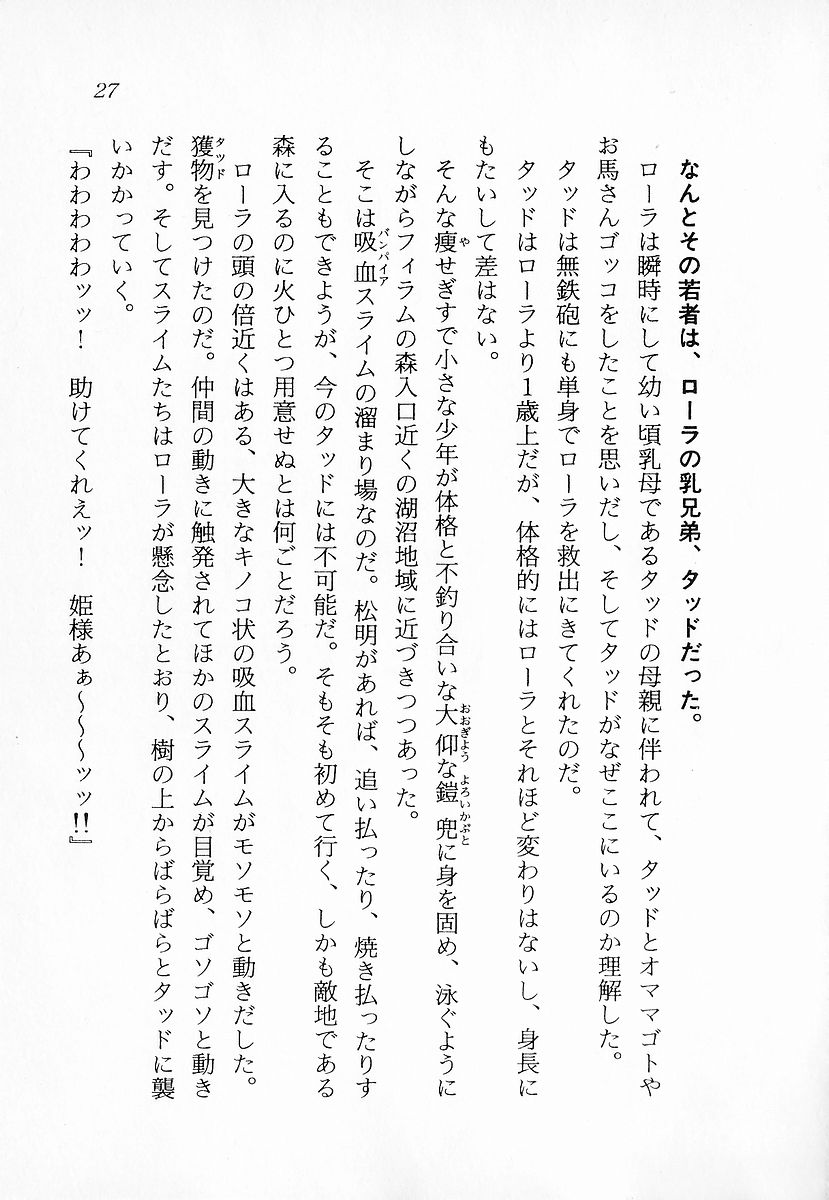 27
なんとその若者は、ローラの乳兄弟、タッドだった。
ローラは瞬時にして幼い頃乳母であるタッドの母親に伴われて、タッドとオママゴトや
お馬さんゴッコをしたことを思いだし、そしてタッドがなぜここにいるのか理解した。
タッドは無鉄砲にも単身でローラを救出にきてくれたのだ。
タッドはローラより1歳上だが、体格的にはローラとそれほど変わりはないし、身長に
もたいして差はない。
そんな痩せぎすで小さな少年が体格と不釣り合いな大仰な鎧兜に身を固め、泳ぐように
しながらフィラムの森入口近くの湖沼地域に近づきつつあった。
そこは吸血スライムの溜まり場なのだ。松明があれば、追い払ったり、焼き払ったりす
ることもできようが、今のタッドには不可能だ。そもそも初めて行く、しかも敵地である
森に入るのに火ひとつ用意せぬとは何ごとだろう。
ローラの頭の倍近くはある、大きなキノコ状の吸血スライムがモソモソと動きだした。
獲物を見つけたのだ。仲間の動きに触発されてほかのスライムが目覚め、ゴソゴソと動き
だす。そしてスライムたちはローラが懸念したとおり、樹の上からばらばらとタッドに襲
いかかっていく。
『わわわわわッッ！　助けてくれえッ！　姫様あぁ〜〜〜ッッ!!』
や
おおぎよう
よろいかぶと
バンパイア
タッド